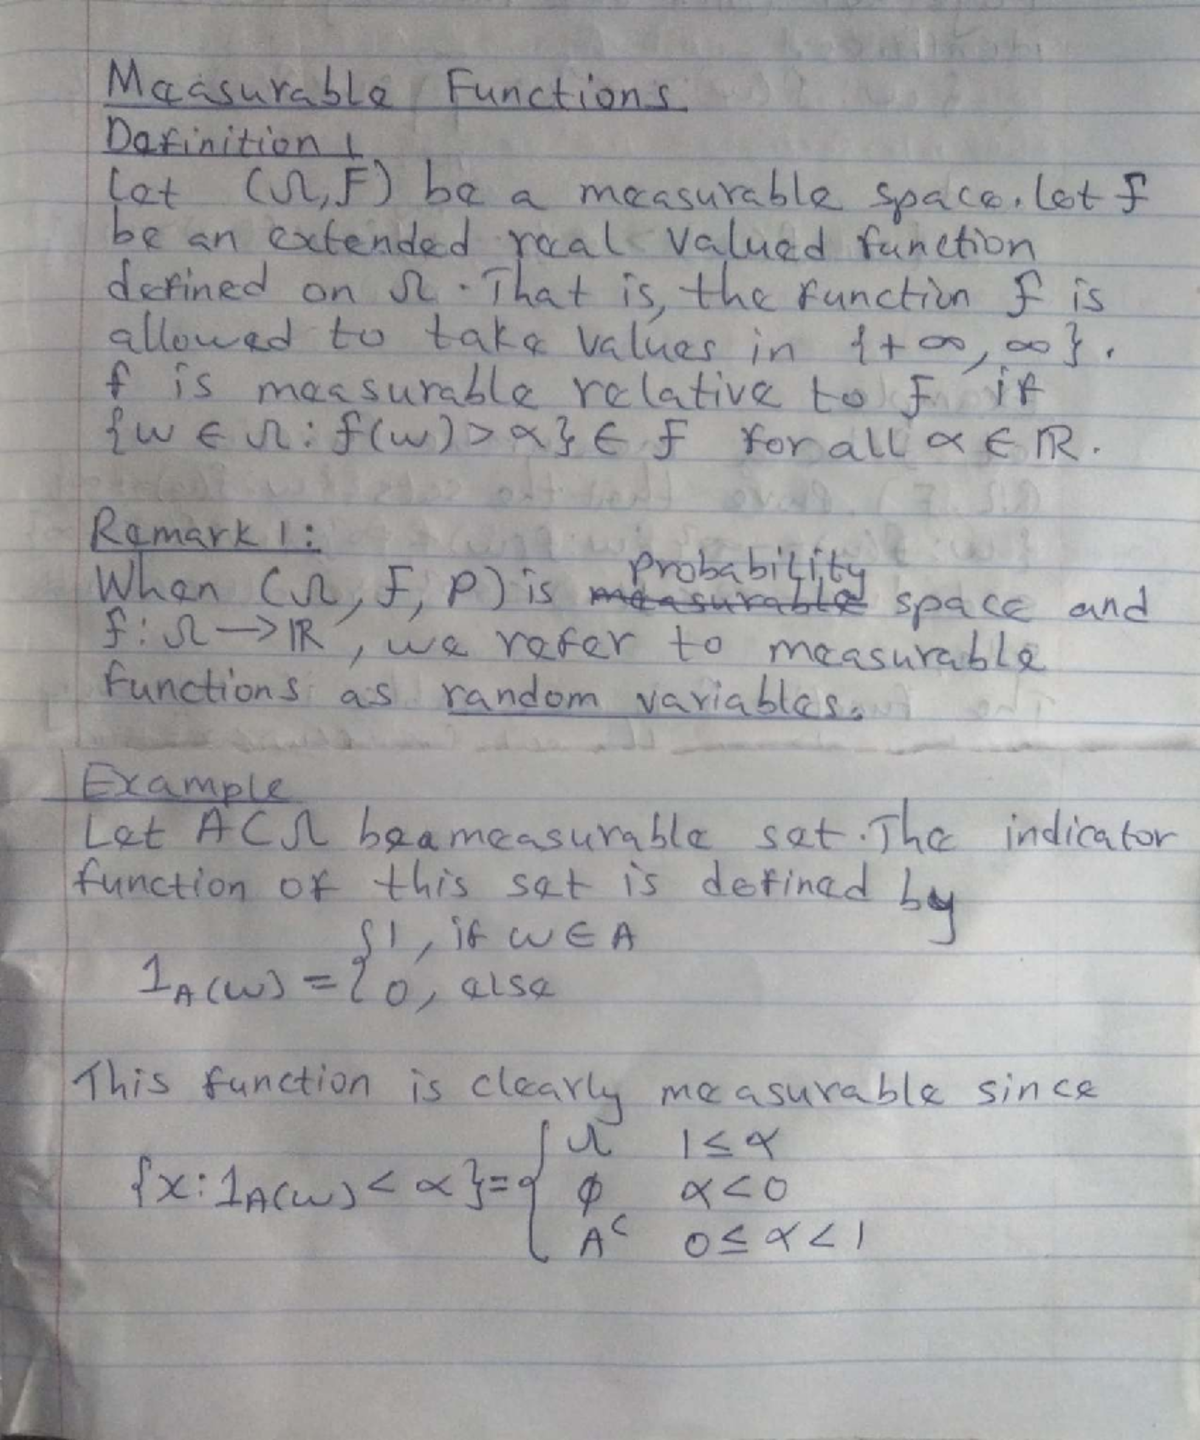 Measurable Functions
Definition 1
Let (Ω, F) be a measurable space. let f
be an extended real valued function
defined on Ω. That is, the function f is
allowed to take values in {+∞, ∞}.
f is measurable relative to F if
{w ∈ Ω : f(w) > α} ∈ F for all α ∈ ℝ.
Remark 1:
When (Ω, F, P) is ~~measurable~~ Probability space and
f : Ω → ℝ, we refer to measurable
functions as random variables.
Example
Let A ⊂ Ω be a measurable set. The indicator
function of this set is defined by
1_A(w) = { 1, if w ∈ A
0, else
This function is clearly measurable since
{x : 1_A(w) < α} = { Ω 1 ≤ α
φ α < 0
A^c 0 ≤ α < 1